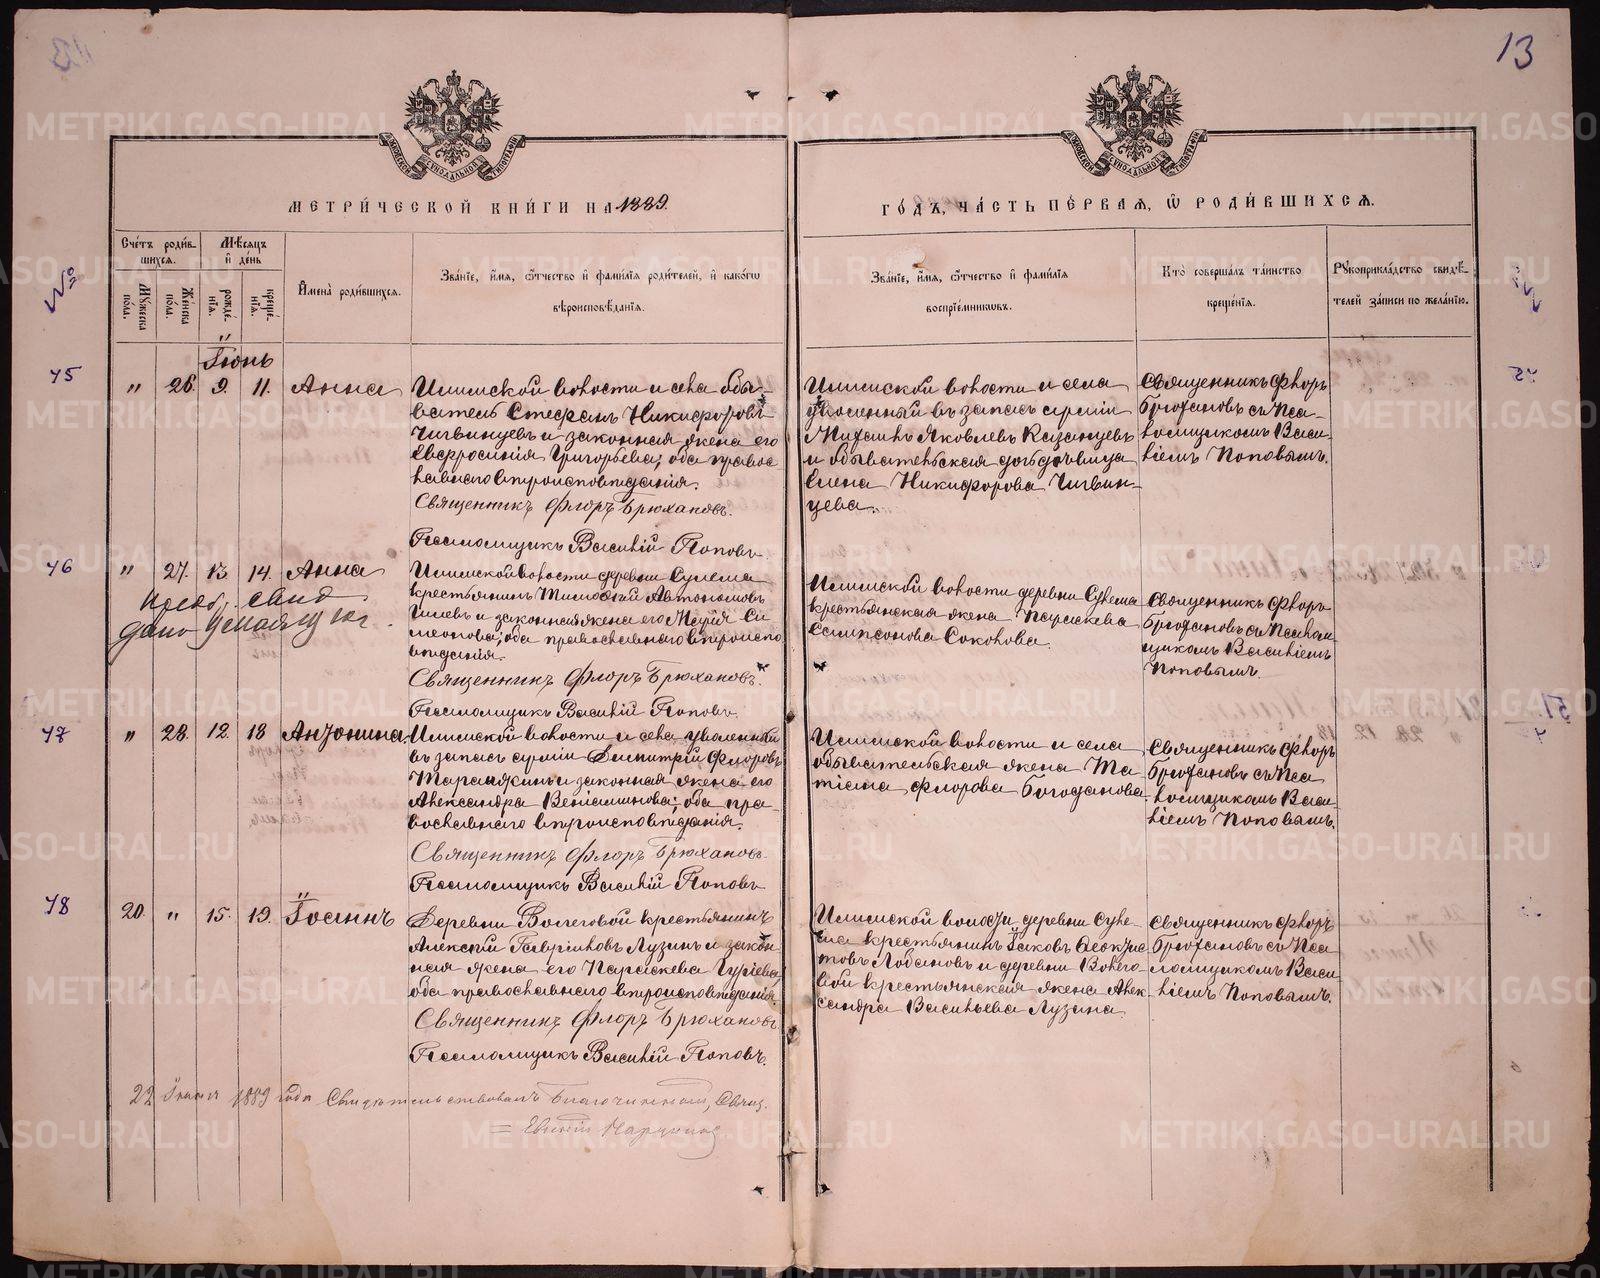 13
МЕТРИ́ЧЕСКОЙ КНИ́ГИ НА 1889.
ГО́ДЪ, ЧА́СТЬ ПЕ́РВАѦ, Ѡ РОДИ́ВШИХСѦ.
Сче́тъ роди́в-
шихсѧ.
Мѣ́сѧцъ
и҆ де́нь
Мꙋ́жеска по́ла.
Же́нска по́ла.
рожде́нїѧ.
креще́нїѧ.
И҆мена̀ роди́вшихсѧ.
Зва́нїе, и҆́мѧ, ѻ҆́тчество и҆ фами́лїѧ роди́телей, и҆ како́гѡ
вѣроисповѣ́данїѧ.
Зва́нїе, и҆́мѧ, ѻ҆́тчество и҆ фами́лїѧ
воспрїе́мникѡвъ.
Кто̀ соверша́лъ та́инство
креще́нїѧ.
Рꙋкоприкла́дство свидѣ́-
телей за́писи по жела́нїю.
№
Іюнь
45
" 26. 9. 11. Анна
Илимской волости и села обы-
ватель Стефанъ Никифоровъ
Чигвинцевъ и законная жена его
Евфросинія Григорьева; оба правос
лавнаго вѣроисповѣданія.
Священникъ Флоръ Брюхановъ.
Псаломщикъ Василій Поповъ.
Илимской волости и села
уволенный въ запасъ арміи
Михаилъ Яковлевъ Казанцевъ
и обывательская дочь дѣвица
Елена Никифорова Чигвин-
цева.
Священникъ Флоръ
Брюхановъ съ Пса-
ломщикомъ Васи-
ліемъ Поповымъ.
46
" 27. 13. 14. Анна
Илимской волости деревни Сулема
крестьянинъ Тимофей Автономовъ
и законная жена его Марія Си
меонова; оба православнаго вѣроиспо
вѣданія.
Священникъ Флоръ Брюхановъ.
Псаломщикъ Василій Поповъ.
Илимской волости деревни Сулема
крестьянская жена Параскева
Сампсонова Соколова.
Священникъ Флоръ
Брюхановъ съ Псалом
щикомъ Василіемъ
Поповымъ.
47
" 28. 12. 18 Антонина.
Илимской волости и села уволенный
въ запасъ арміи Димитрій Флоровъ
и законная жена его
Александра Веніаминова; оба пра-
вославнаго вѣроисповѣданія.
Священникъ Флоръ Брюхановъ.
Псаломщикъ Василій Поповъ
Илимской волости и села
обывательская жена Та
тіана Флорова Богоданова.
Священникъ Флоръ
Брюхановъ съ Пса
ломщикомъ Васи-
ліемъ Поповымъ.
48
20. " 15. 19. Іоаннъ
Деревни Волеговой крестьянинъ
Алексѣй Гавріиловъ Лузинъ и закон
ная жена его Параскева Гуріева,
оба православнаго вѣроисповѣданія.
Священникъ Флоръ Брюхановъ
Псаломщикъ Василій Поповъ.
Илимской волости деревни Суле-
ма крестьянинъ Іаковъ Ѳеоктис
товъ Лобановъ и деревни Волего-
вой крестьянская жена Алек-
сандра Васильева Лузина.
Священникъ Флоръ
Брюхановъ съ Пса
ломщикомъ Васи
ліемъ Поповымъ.
22 1889 года Свидѣтельствовалъ Благочинный, Свящ.
METRIKI.GASO-URAL.RU